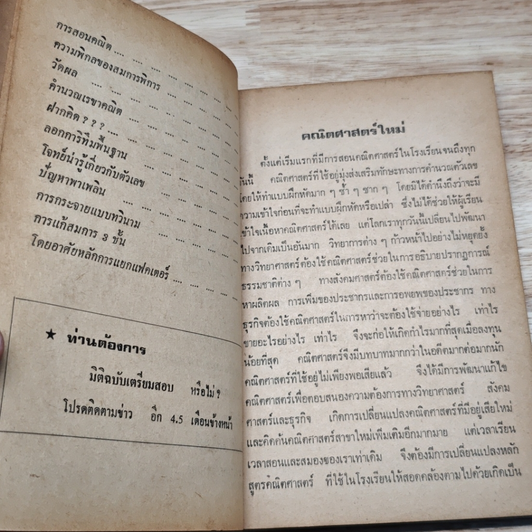 การสอนคณิต .... .... .... .... ....
ความพิกลของสมการพิการ
วัดผล .... .... .... .... ....
คำนวณเรขาคณิต .... .... ....
ฝากคิด ? ? ? .... .... .... ....
ลอกคาริทึมพื้นฐาน .... ....
โจทย์น่ารู้เกี่ยวกับตัวเลข .... ....
ปัญหาพาเพลิน .... .... .... ....
การกระจายแบบทวินาม .... ....
การแก้สมการ 3 ชั้น .... ....
โดยอาศัยหลักการแยกแฟคเตอร์ ....
★ ท่านต้องการ
มิติฉบับเตรียมสอบ หรือไม่ ?
โปรดติดตามข่าว อีก 4.5 เดือนข้างหน้า
คณิตศาสตร์ใหม่
ตั้งแต่เริ่มแรกที่มีการสอนคณิตศาสตร์ในโรงเรียนจนถึงทุก
วันนี้ คณิตศาสตร์ที่ใช้อยู่มุ่งส่งเสริมทักษะทางการคำนวณตัวเลข
โดยให้ทำแบบฝึกหัดมาก ๆ ซ้ำ ๆ ซาก ๆ โดยมิได้คำนึงถึงว่าจะมี
ความเข้าใจก่อนที่จะทำแบบฝึกหัดหรือเปล่า ซึ่งไม่ได้ช่วยให้ผู้เรียน
เข้าเนื้อหาคณิตศาสตร์ได้เลย แต่โลกเราทุกวันนี้เปลี่ยนไปพัฒนา
ไปจากเดิมเป็นอันมาก วิทยาการต่าง ๆ ก้าวหน้าไปอย่างไม่หยุดยั้ง
ทางวิทยาศาสตร์ต้องใช้คณิตศาสตร์ช่วยในการอธิบายปรากฏการณ์
ธรรมชาติต่าง ๆ ทางสังคมศาสตร์ต้องใช้คณิตศาสตร์ช่วยในการ
หาผลิตผล การเพิ่มของประชากรและการอพยพของประชากร ทาง
ธุรกิจต้องใช้คณิตศาสตร์ในการหาว่าจะต้องใช้จ่ายอย่างไร เท่าไร
ขายอะไรอย่างไร เท่าไร จึงจะก่อให้เกิดกำไรมากที่สุดเมื่อลงทุน
น้อยที่สุด คณิตศาสตร์จึงมีบทบาทมากกว่าในอดีตมากต่อมากนัก
คณิตศาสตร์ที่ใช้อยู่ไม่เพียงพอเสียแล้ว จึงได้มีการพัฒนาแก้ไข
คณิตศาสตร์เพื่อตอบสนองความต้องการทางวิทยาศาสตร์ สังคม
ศาสตร์และธุรกิจ เกิดการเปลี่ยนแปลงคณิตศาสตร์ที่มีอยู่เสียใหม่
และคิดค้นคณิตศาสตร์สาขาใหม่เพิ่มเติมอีกมากมาย แต่เวลาเรียน
เวลาสอนและสมองของเราเท่าเดิม จึงต้องมีการเปลี่ยนแปลงหลัก
สูตรคณิตศาสตร์ ที่ใช้ในโรงเรียนให้สอดคล้องตามไปด้วยเกิดเป็น